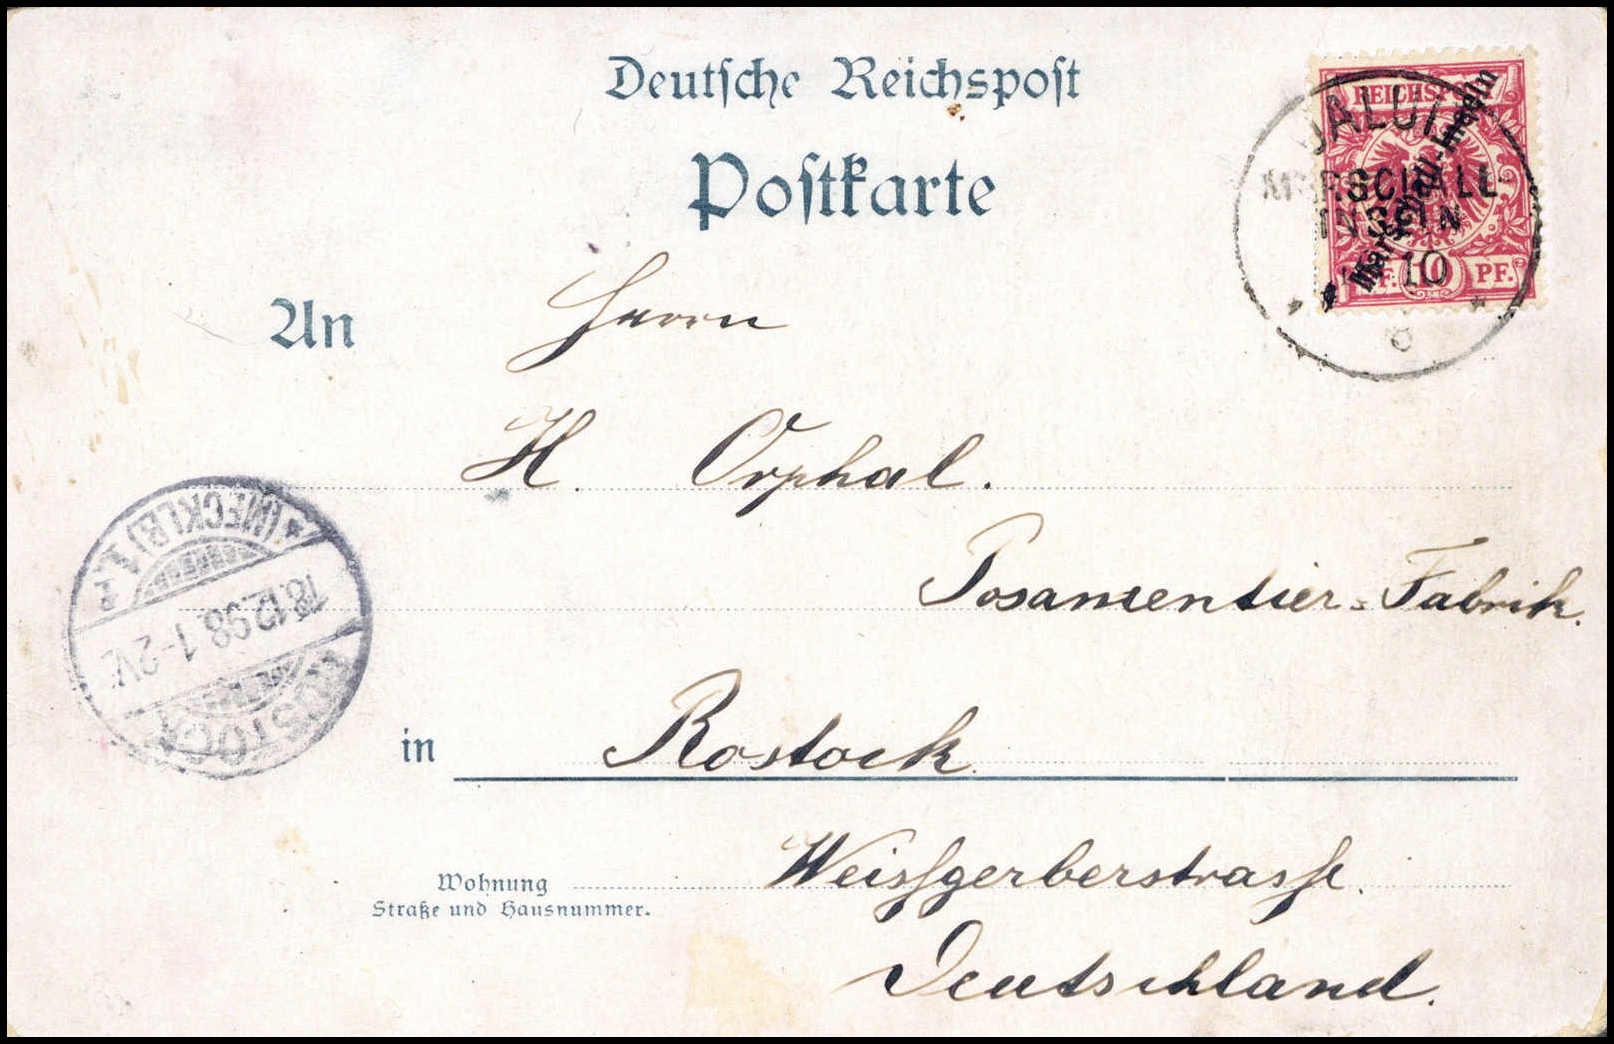 Deutsche Reichspost
Postkarte
REICHSPOST
Marschall-Inseln
10 PF.
JALUIT
MARSCHALL-
INSELN
10
An Herrn
H. Orphal.
Posamentier-Fabrik.
in Rostock
Wohnung Weissgerberstrasse.
Straße und Hausnummer.
Deutschland.
ROSTOCK
18.12.98.1-2V.
(MECKLB) 1